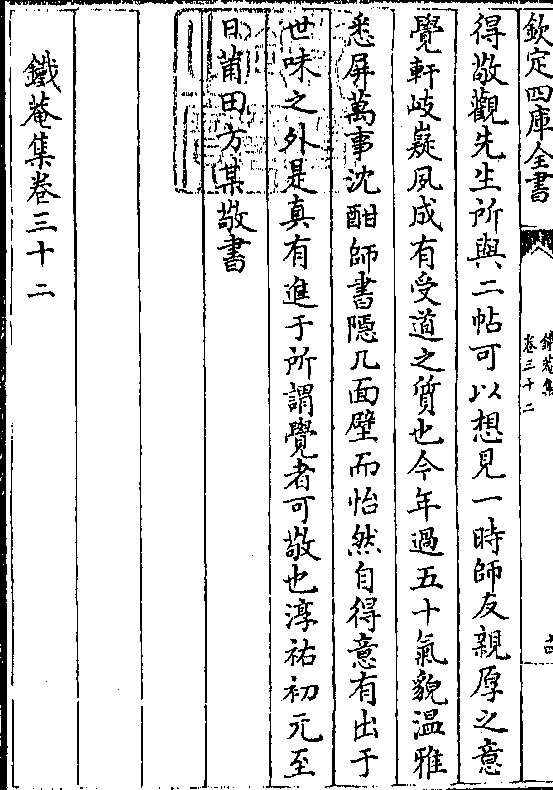 欽定四庫全書
鐵菴集
卷三十二
得敬觀先生所與二帖可以想見一時師友親厚之意
覺軒岐嶷夙成有受道之質也今年過五十氣貌溫雅
悉屏萬事沈酣師書隱几面壁而怡然自得意有出于
世味之外是真有進于所謂覺者可敬也淳祐初元至
日莆田方某敬書
鐵菴集卷三十二